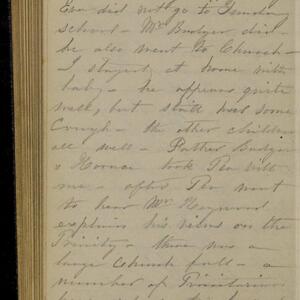 Eva did not go to Sunday
school - Mr Badger did -
he also went to Church -
I stayed at home with
baby - he appears quite
well, but still has some
Cough - the other children
all well - Father Badger
& Horace took Tea with
me - after Tea went
to hear Mr Heywood
explain his views on the
Trinity - there was a
large Church full - a
number of Trinitarians